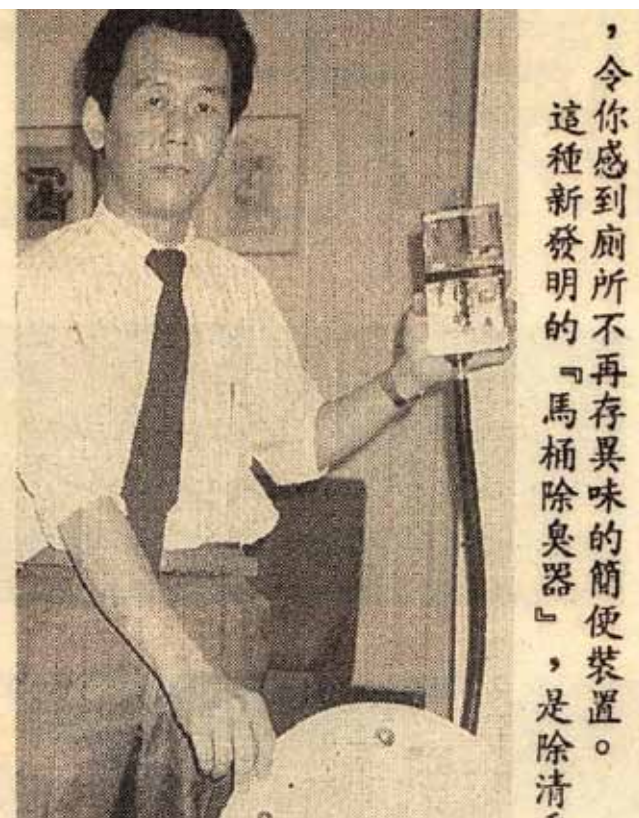 ，令你感到廁所不再存異味的簡便裝置。
這種新發明的『馬桶除臭器』，是除清